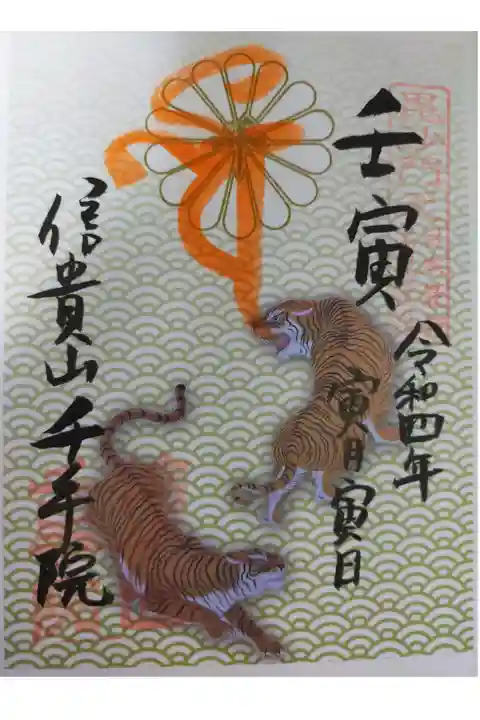 壬寅
令和四年
寅月寅日
信貴山千手院